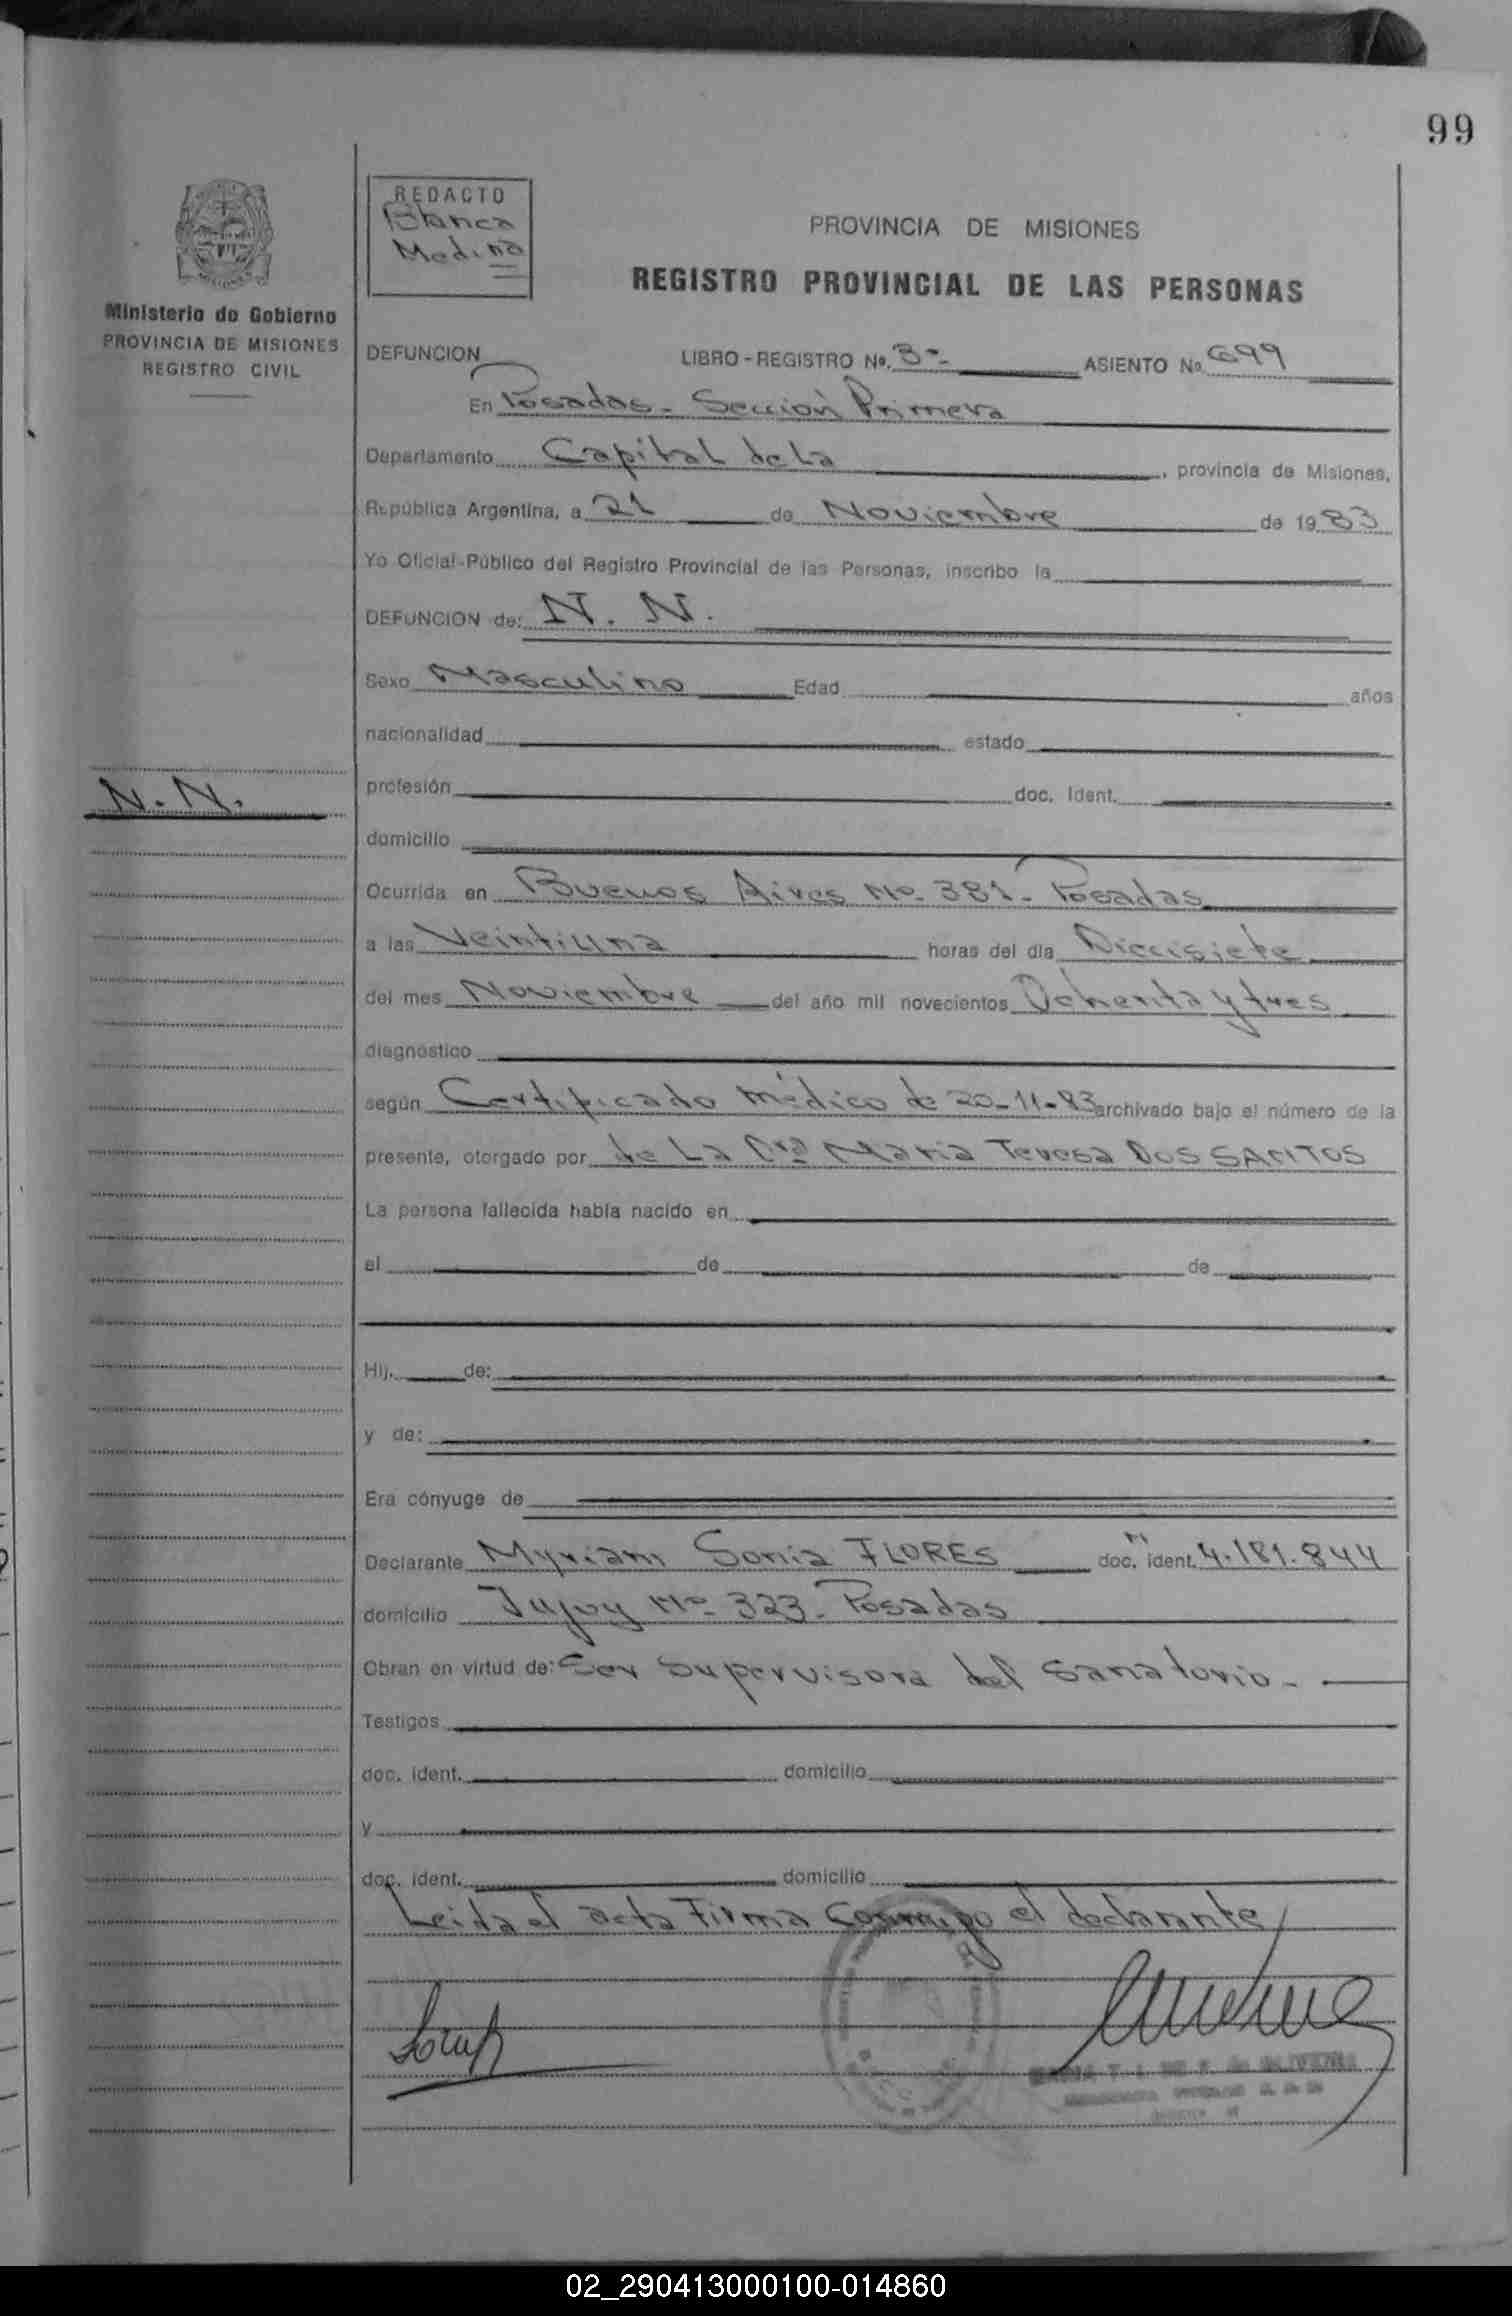 99
REDACTO
Blanca
Medina
PROVINCIA DE MISIONES
REGISTRO PROVINCIAL DE LAS PERSONAS
Ministerio de Gobierno
PROVINCIA DE MISIONES
REGISTRO CIVIL
DEFUNCION LIBRO-REGISTRO No. 3º- ASIENTO No. 699
En Posadas - Sección Primera
Departamento Capital de la , provincia de Misiones,
República Argentina, a 21 de Noviembre de 1983
Yo Oficial-Público del Registro Provincial de las Personas, inscribo la
DEFUNCION de: N. N.
Sexo Masculino Edad años
nacionalidad estado
N. N.
profesión doc. ident.
domicilio
Ocurrida en Buenos Aires Nº 381- Posadas
a las Veintiuna horas del día Diecisiete
del mes Noviembre del año mil novecientos Ochenta y tres
diagnóstico
según Certificado médico de 20-11-83 archivado bajo el número de la
presente, otorgado por de La Dra Maria Teresa DOS SANTOS
La persona fallecida había nacido en
el de de
Hij. de:
y de:
Era cónyuge de
Declarante Myriam Sonia FLORES doc. ident. 4.181.844
domicilio Jujuy Nº 323- Posadas
Obran en virtud de: Ser Supervisora del Sanatorio-
Testigos
doc. ident. domicilio
y
doc. ident. domicilio
Leida el acta Firma conmigo el declarante
02_290413000100-014860